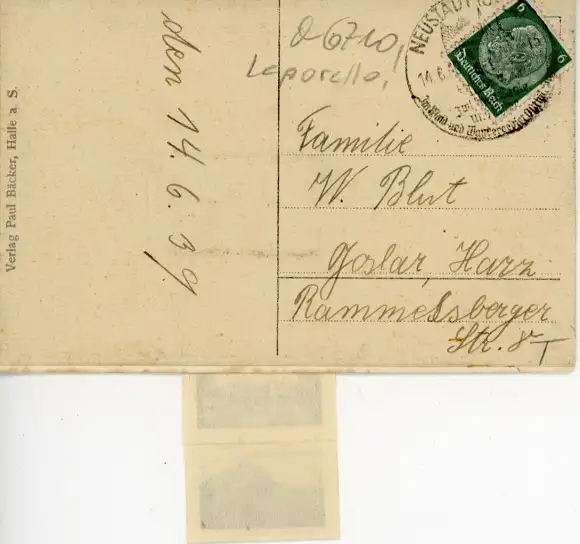 Verlag Paul Bäcker, Halle a. S.
den 14. 6. 39
Leporello!
NEUSTADT
14.6.
6
6
Deutsches Reich
Familie
W. Blut
Goslar, Harz
Rammelsberger
Str. 8